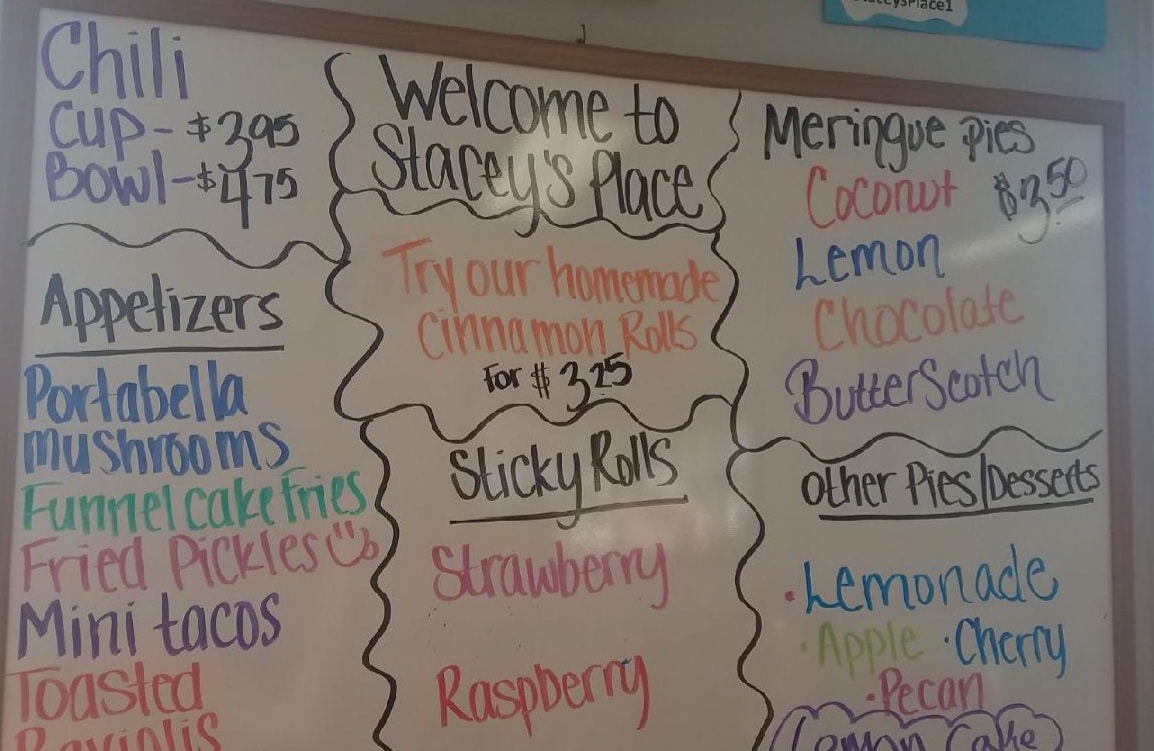 Chili
Cup - $3.95
Bowl - $4.75
Appetizers
Portabella
mushrooms
Funnel cake fries
Fried Pickles
Mini tacos
Toasted
Raviolis
Welcome to
Stacey's Place
Try our homemade
Cinnamon Rolls
For $3.25
Sticky Rolls
Strawberry
Raspberry
Meringue Pies
Coconut $3.50
Lemon
Chocolate
ButterScotch
Other Pies/Desserts
·Lemonade
·Apple ·Cherry
·Pecan
Lemon Cake